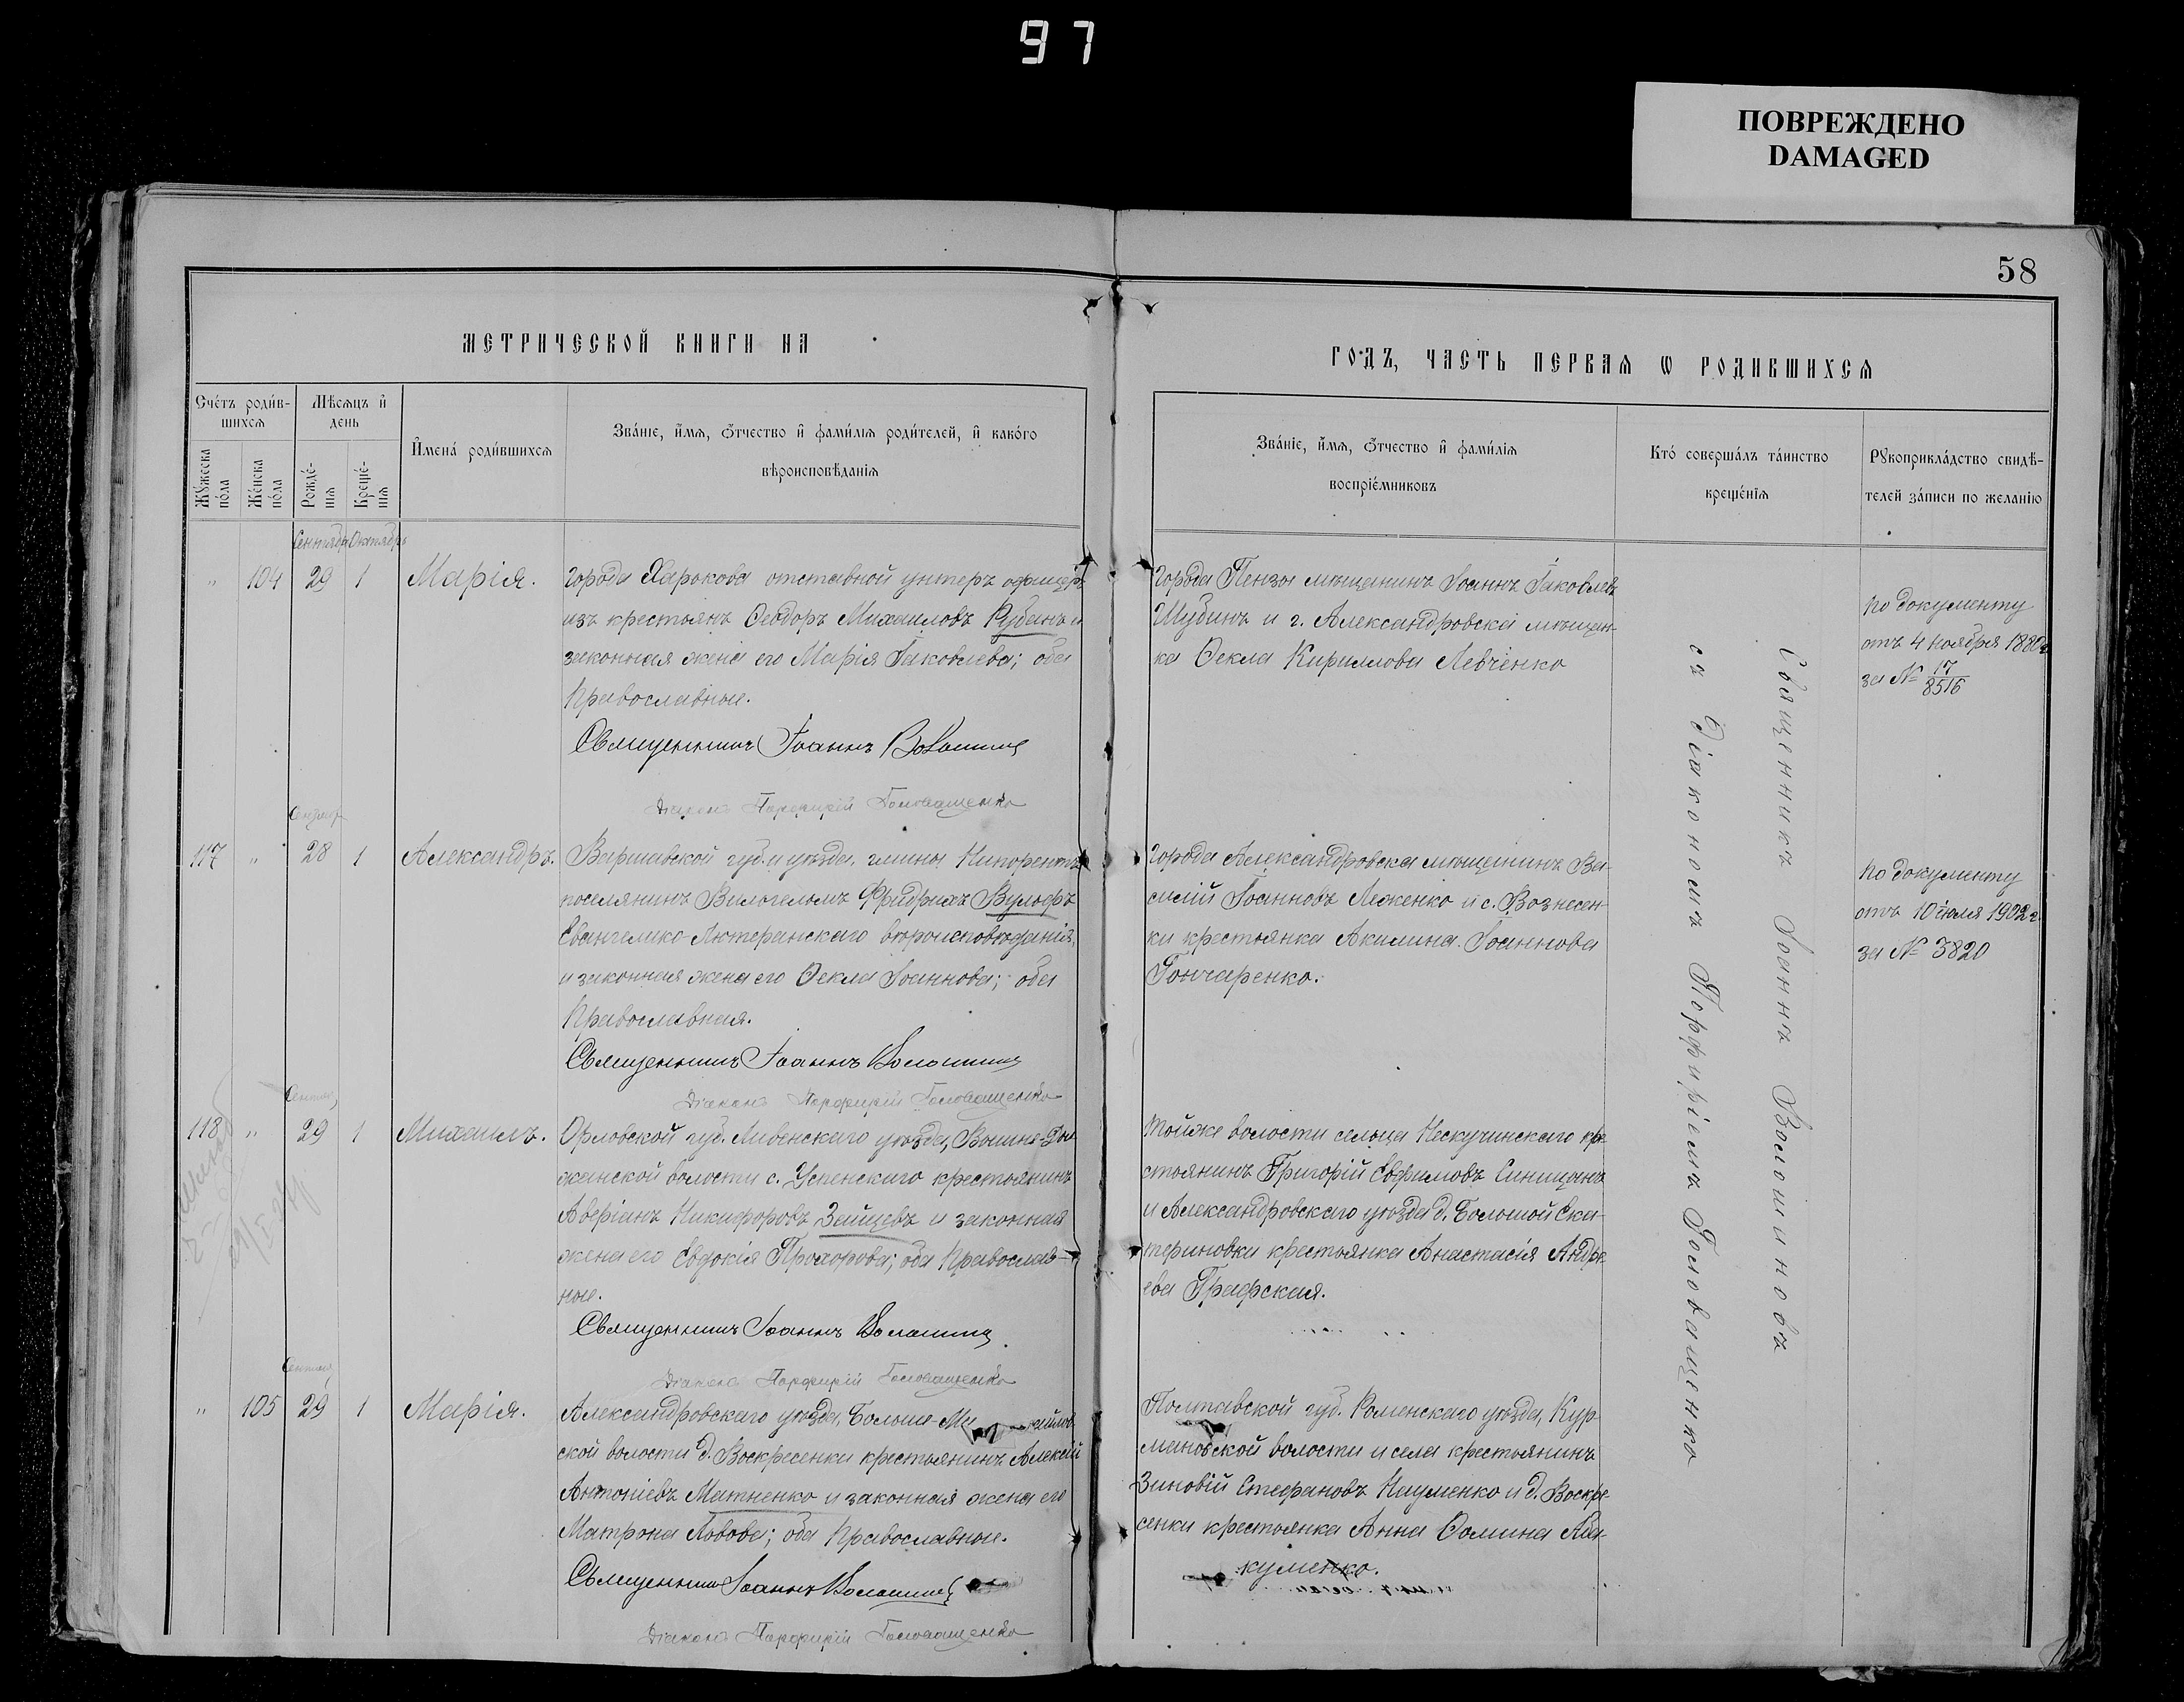 97
ПОВРЕЖДЕНО
DAMAGED
58
МЕТРИЧЕСКОЙ КНИГИ НА
ГОДЪ, ЧАСТЬ ПЕРВАЯ Ѡ РОДИВШИХСЯ
Сче́тъ роди́в-
шихсѧ
Мѣсѧцъ и҆
день
Мꙋ́жеска
по́ла
Же́нска
по́ла
Рожде́-
нїѧ
Креще́-
нїѧ
И҆мена́ роди́вшихсѧ
Зва́нїе, и҆́мѧ, ѻ҆́тчество и҆ фами́лїѧ роди́телей, и҆ како́гѡ
вѣроисповѣ́данїѧ
Зва́нїе, и҆́мѧ, ѻ҆́тчество и҆ фами́лїѧ
воспрїе́мниковъ
Кто́ соверша́лъ та́инство
креще́нїѧ
Рꙋкоприкла́дство свидѣ́-
телей за́писи по жела́нїю
Сентябр Октябрь
" 104 29 1 Марія.
города Харькова отставной унтеръ офицеръ
изъ крестьянъ Ѳеодоръ Михаиловъ Рубанъ и
законная жена его Марія Іаковлева; оба
православные.
Священникъ Іоаннъ Волошинъ
Діаконъ Порфирій Головащенко
города Пензы мѣщанинъ Іоаннъ Іаковлевъ
Шубинъ и г. Александровска мѣщан-
ка Ѳекла Кириллова Левченко
по документу
отъ 4 ноября 1880 г.
за № 17/8516
117 " 28 1 Александръ.
Варшавской губ. и уѣзда, гмины Непорентъ
поселянинъ Вильгельмъ Фридрихъ Вульфъ
Евангелико-Лютеранскаго вѣроисповѣданія,
и законная жена его Ѳекла Іоаннова; оба
православная.
Священникъ Іоаннъ Волошинъ
Діаконъ Порфирій Головащенко
города Александровска мѣщанинъ Ва-
силій Іоанновъ Леженко и с. Вознесен-
ки крестьянка Акилина Іоаннова
Гончаренко.
по документу
отъ 10 іюля 1902 г.
за № 3820
118 " 29 1 Михаилъ.
Орловской губ. Ливенскаго уѣзда,
жанской волости с. Успенскаго крестьянинъ
Аверіанъ Никифоровъ Зайцевъ и законная
жена его Евдокія Прохорова; оба православ-
ные.
Священникъ Іоаннъ Волошинъ
Діаконъ Порфирій Головащенко
тойже волости сельца Нескучинскаго кре-
стьянинъ Григорій Евфимовъ Синицынъ
и Александровскаго уѣзда д. Большой Ека-
териновки крестьянка Анастасія Андре-
ева Графская.
" 105 29 1 Марія.
Александровскаго уѣзда, Больше-Михайлов-
ской волости д. Воскресенки крестьянинъ Алексій
Антоніевъ Матненко и законная жена его
Матрона Львова; оба православные.
Священникъ Іоаннъ Волошинъ
Діаконъ Порфирій Головащенко
Полтавской губ. Роменскаго уѣзда, Кур-
мановской волости и села крестьянинъ
Зиновій Стефановъ Науменко и д. Воскре-
сенки крестьянка Анна Ѳомина Аба-
куменко.
Священникъ Іоаннъ Волошиновъ
съ Діакономъ Порфиріемъ Головащенко